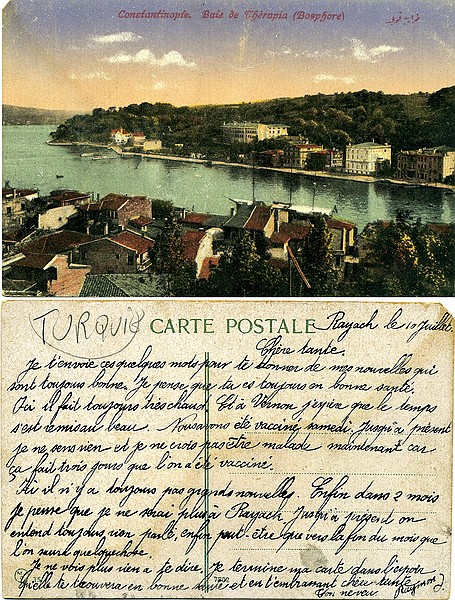 Constantinople. Baie de Thérapia (Bosphore)
TURQUIE
CARTE POSTALE
Rayach le 10 Juillet.
Chère tante.
Je t'envoie ces quelques mots pour te donner de mes nouvelles qui
sont toujours bonne. Je pense que tu es toujours en bonne santé.
Ici il fait toujours très chaud. Et à Vernon j'espère que le temps
s'est remis au beau. Nous avons été vacciné samedi. Jusqu'à présent
je ne sens rien et je ne crois pas être malade maintenant car
ça fait trois jours que l'on a été vacciné.
Ici il n'y a toujours pas grandes nouvelles. Enfin dans 2 mois
je pense que je ne serai plus à Rayach. Jusqu'à présent on
entend toujours rien parlé, enfin peut-être que vers la fin du mois que
l'on saura quelque chose.
Je ne vois plus rien a te dire. Je termine ma carte dans l'espoir
qu'elle te trouvera en bonne santé et en t'embrassant chère tante
Ton neveu